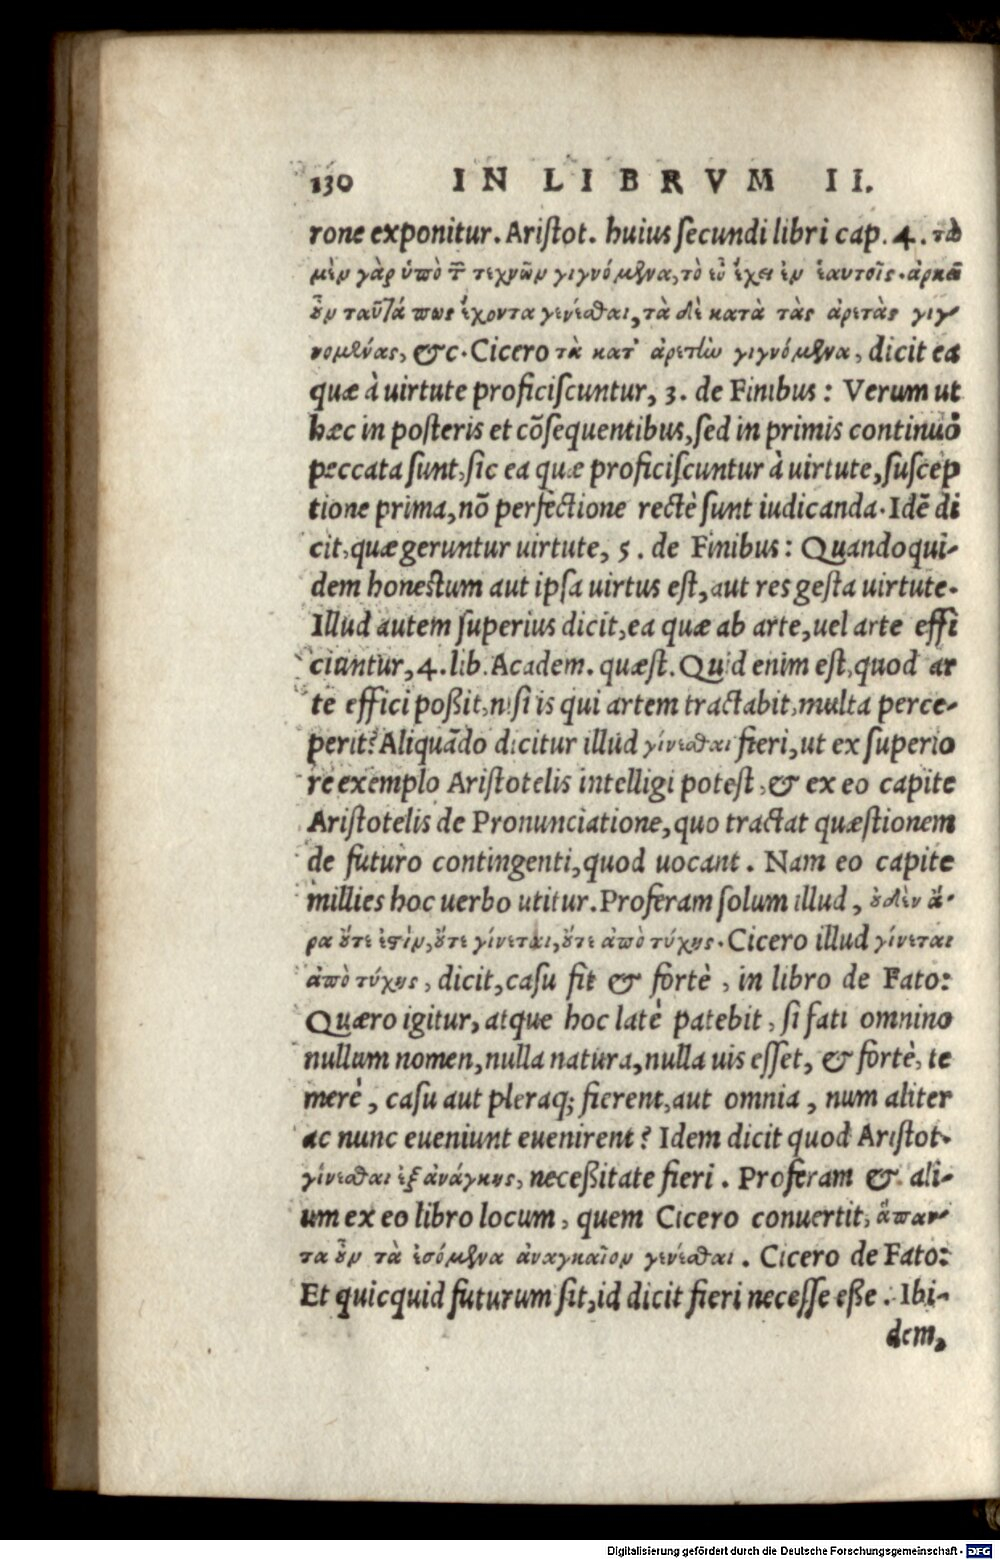 130 IN LIBRVM II.
rone exponitur. Aristot. huius secundi libri cap. 4. τὰ
μὲν γὰρ ὑπὸ τ τεχνῶν γιγνόμενα, τὸ εὖ ἔχει ἐν ἑαυτοῖς. ἀρκεῖ
οὖν ταῦτά πως ἔχοντα γενέσθαι, τὰ δὲ κατὰ τὰς ἀρετὰς γιγ
νομένας, &c. Cicero τὰ κατ' ἀρετὼ γιγνόμενα, dicit ea
quæ à uirtute proficiscuntur, 3. de Finibus: Verum ut
hæc in posteris et cõsequentibus, sed in primis continuò
peccata sunt, sic ea quæ proficiscuntur à uirtute, suscep
tione prima, nõ perfectione rectè sunt iudicanda. Idẽ di
cit, quæ geruntur uirtute, 5. de Finibus: Quandoqui-
dem honestum aut ipsa uirtus est, aut res gesta uirtute.
Illud autem superius dicit, ea quæ ab arte, uel arte effi
ciuntur, 4. lib. Academ. quæst. Quid enim est, quod ar
te effici poßit, nisi is qui artem tractabit, multa perce-
perit? Aliquãdo dicitur illud γίνεσθαι fieri, ut ex superio
re exemplo Aristotelis intelligi potest, & ex eo capite
Aristotelis de Pronunciatione, quo tractat quæstionem
de futuro contingenti, quod uocant. Nam eo capite
millies hoc uerbo utitur. Proferam solum illud, οὐδὲν ἄ-
ρα οὔτε ἐστὶν, οὔτε γίνεται, οὔτε ἀπὸ τύχης. Cicero illud γίνεται
ἀπὸ τύχης, dicit, casu fit & fortè, in libro de Fato:
Quæro igitur, atque hoc latè patebit, si fati omnino
nullum nomen, nulla natura, nulla uis esset, & fortè, te
merè, casu aut pleraq; fierent, aut omnia, num aliter
ac nunc eueniunt euenirent? Idem dicit quod Aristot.
γίνεσθαι ἐξ ἀνάγκης, neceßitate fieri. Proferam & ali-
um ex eo libro locum, quem Cicero conuertit, ἅπαν-
τα οὖν τὰ ἐσόμενα ἀναγκαῖον γενέσθαι. Cicero de Fato:
Et quicquid futurum sit, id dicit fieri necesse eße. Ibi-
dem,
Digitalisierung gefördert durch die Deutsche Forschungsgemeinschaft - DFG